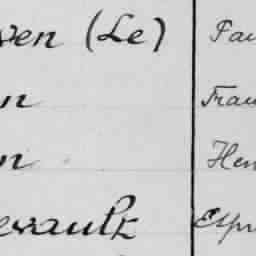 ven (Le) Pau
n Fran
n Hen
evault Espr